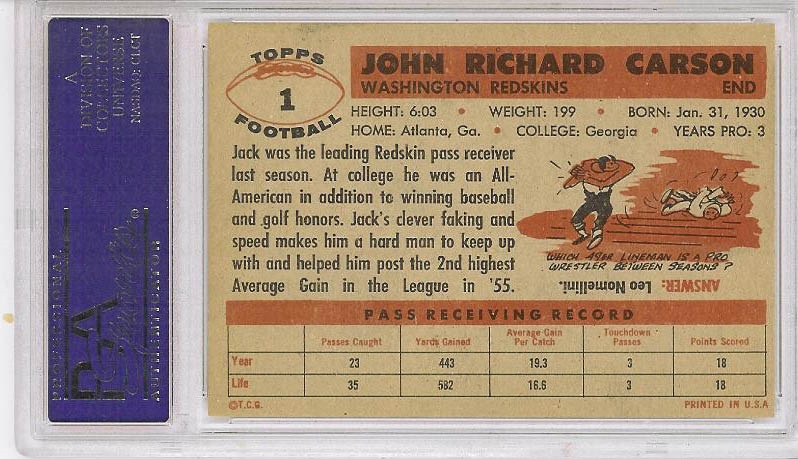 A
DIVISION OF
COLLECTORS
UNIVERSE
NASDAQ: CLCT
PROFESSIONAL
PSA
AUTHENTICATOR
TOPPS
1
FOOTBALL
JOHN RICHARD CARSON
WASHINGTON REDSKINS END
HEIGHT: 6:03 • WEIGHT: 199 • BORN: Jan. 31, 1930
HOME: Atlanta, Ga. • COLLEGE: Georgia • YEARS PRO: 3
Jack was the leading Redskin pass receiver
last season. At college he was an All-
American in addition to winning baseball
and golf honors. Jack's clever faking and
speed makes him a hard man to keep up
with and helped him post the 2nd highest
Average Gain in the League in '55.
WHICH 49ER LINEMAN IS A PRO
WRESTLER BETWEEN SEASONS?
ANSWER: Leo Nomellini.
PASS RECEIVING RECORD
Passes Caught Yards Gained Average Gain Per Catch Touchdown Passes Points Scored
Year 23 443 19.3 3 18
Life 35 582 16.6 3 18
©T.C.G. PRINTED IN U.S.A